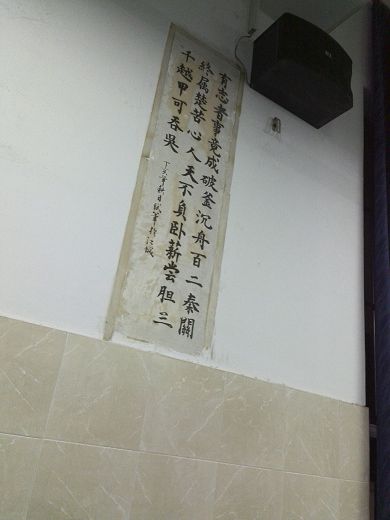 有志者事竟成破釜沉舟百二秦關
終属楚苦心人天不負卧薪尝胆三
千越甲可吞吳
丁亥年秋日試筆於江城